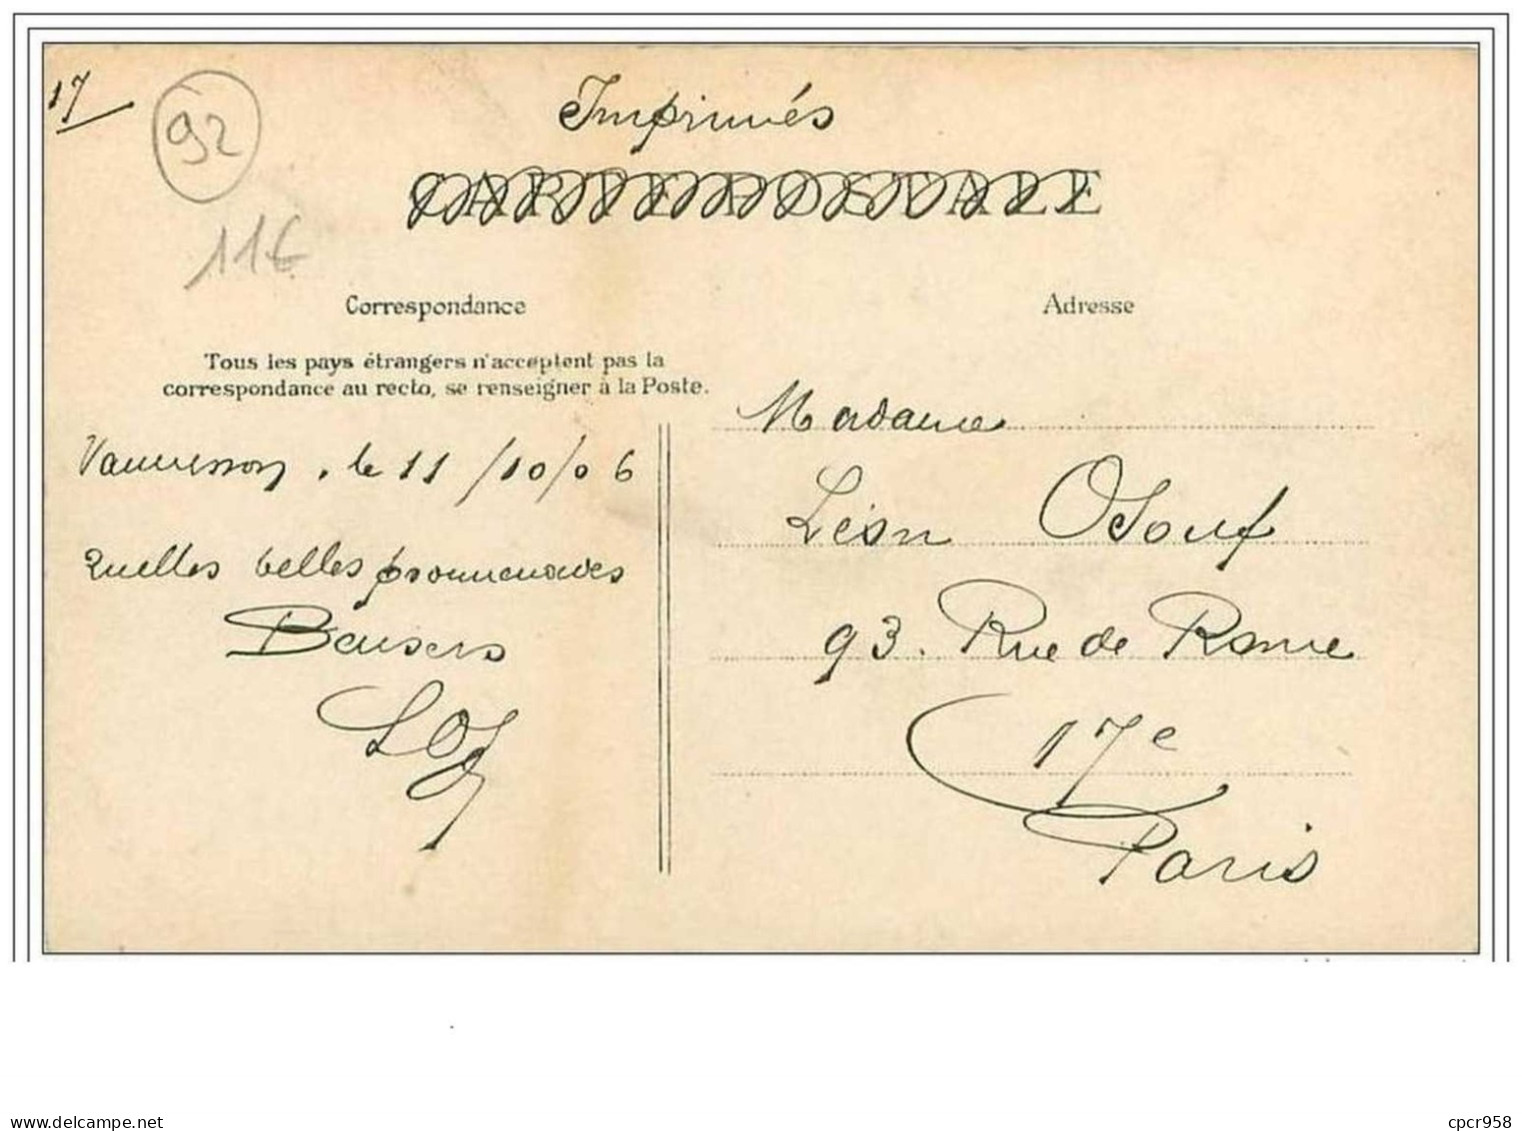 17
92
11€
Imprimés
CARTE POSTALE
Correspondance
Tous les pays étrangers n'acceptent pas la
correspondance au recto, se renseigner à la Poste.
Vaucresson, le 11/10/06
Quelles belles promenades
Baisers
Adresse
Madame
Léon Osouf
93. Rue de Rome
17e
Paris
cpcr958